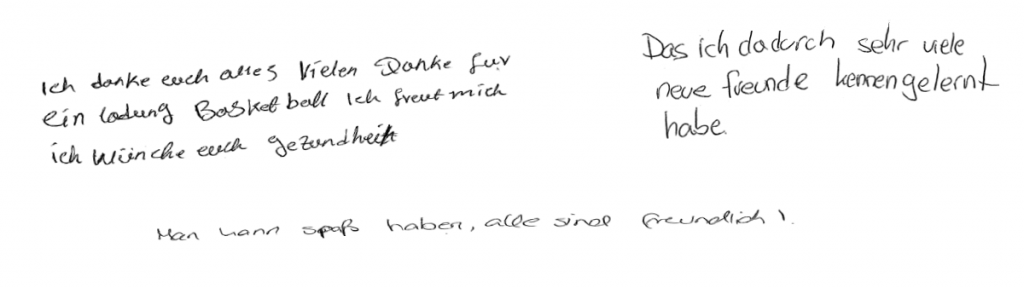 Ich danke euch alles Vielen Danke für
ein ladung Basketball Ich freut mich
ich Wünche euch gezundheit
Das ich dadurch sehr viele
neue freunde kennengelernt
habe.
Man kann spaß haben, alle sind freundlich!